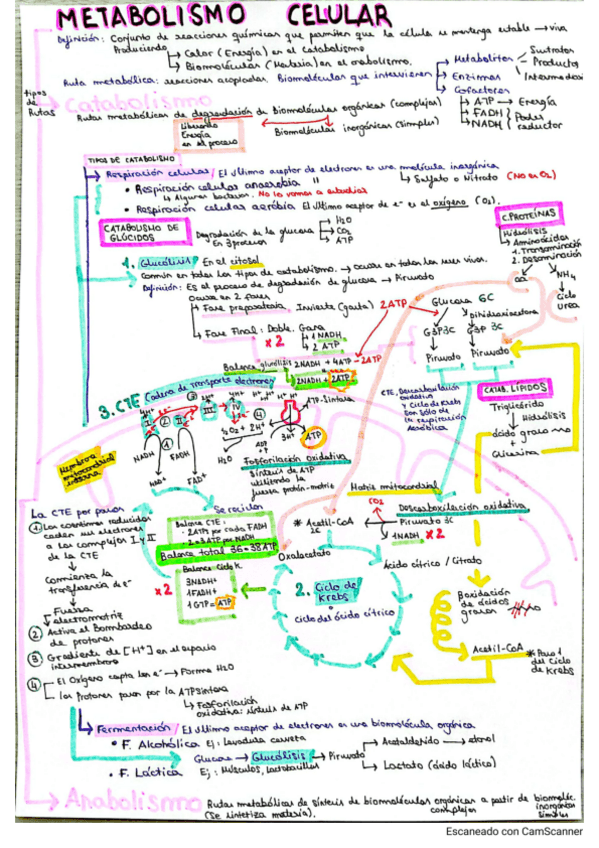 METABOLISMO CELULAR
Definición: Conjunto de reacciones químicas que permiten que la célula se mantenga estable → viva
Produciendo → Calor (Energía) en el catabolismo
→ Biomoléculas (Materia) en el anabolismo.
Ruta metabólica: reacciones acopladas. Biomoléculas que intervienen
→ Metabolitos
Sustratos
Productos
→ Enzimas
→ Cofactores
→ ATP → Energía
→ FADH
→ NADH
Poder reductor
tipos de Rutas
Catabolismo
Rutas metabólicas de degradación de biomoléculas orgánicas (complejas)
Biomoléculas inorgánicas (simples)
Liberando
Energía
en el proceso
TIPOS DE CATABOLISMO
→ Respiración celular / El último aceptor de electrones es una molécula inorgánica
• Respiración celular anaerobia "
→ Sulfato o Nitrato (NO es O2)
→ Algunas bacterias. No la vamos a estudiar
• Respiración celular aerobia El último aceptor de e- es el oxígeno (O2).
CATABOLISMO DE
GLÚCIDOS
Degradación de la glucosa
en 3 procesos
→ H2O
→ CO2
→ ATP
C. PROTEÍNAS
Hidrólisis
→ Aminoácidos
1. Transaminación
2. Desaminación
NH4
Ciclo
urea
1. Glucólisis En el citosol
Común en todos los tipos de catabolismo. → ocurre en todos los seres vivos.
Definición: Es el proceso de degradación de glucosa → Piruvato
Ocurre en 2 fases
→ Fase preparatoria Invierte (gasta) 2ATP
→ Fase Final: Doble. Gana
x2
1 NADH
2 ATP
Glucosa 6C
Dihidroxiacetona
G3P 3C G3P 3C
Piruvato Piruvato
Balance glucólisis 2NADH + 4ATP - 2ATP
2NADH + 2ATP
3. CTE Cadena de transporte electrones
4H+ H+ H+ H+
I II III IV
ATP-Sintasa
½O2 + 2H+
NADH FADH H2O ADP 3H+ ATP
NAD+ FAD+
Membrana
mitocondrial
interna
Fosforilación oxidativa
Síntesis de ATP
utilizando la
fuerza protón-motriz
CTE, Descarboxilación
oxidativa
y Ciclo de Krebs
Son sólo de
la respiración
Aeróbica
CATAB. LÍPIDOS
Triglicérido
Hidrólisis
ácido graso
Glicerina
Matriz mitocondrial
CO2
Descarboxilación oxidativa
* Acetil-CoA
2C
Piruvato 3C
1NADH x2
Se reciclan
Balance CTE:
· 2ATPs por cada FADH
· 2-3ATP por NADH
Balance total 36-38ATP
Balance Ciclo K
x2
3NADH+
1FADH+
1GTP = ATP
Oxalacetato
Ácido cítrico / Citrato
2. Ciclo de
Krebs
o
ciclo del ácido cítrico
β oxidación
de ácidos
grasos
Acetil-CoA
* Paso 1
del ciclo
de Krebs
La CTE por pasos
1 Las coenzimas reducidas
ceden sus electrones
a los complejos I y II
de la CTE
Comienza la
transferencia de e-
Fuerza
electromotriz
2 Activa el Bombardeo
de protones
3 Gradiente de [H+] en el espacio
intermembrana
4 El Oxígeno capta los e- → Forma H2O
Los Protones pasan por la ATPsintasa
→ Fosforilación
oxidativa: síntesis de ATP
→ Fermentación / El último aceptor de electrones es una biomolécula orgánica
• F. Alcohólica Ej: levadura cerveza
Glucosa → Glucólisis → Piruvato
→ Acetaldehído → etanol
→ Lactato (ácido láctico)
• F. Láctica Ej: Músculos, lactobacillus
Anabolismo Rutas metabólicas de síntesis de biomoléculas orgánicas a partir de biomoléc.
(Se sintetiza materia). complejas inorgánicas
simples
Escaneado con CamScanner